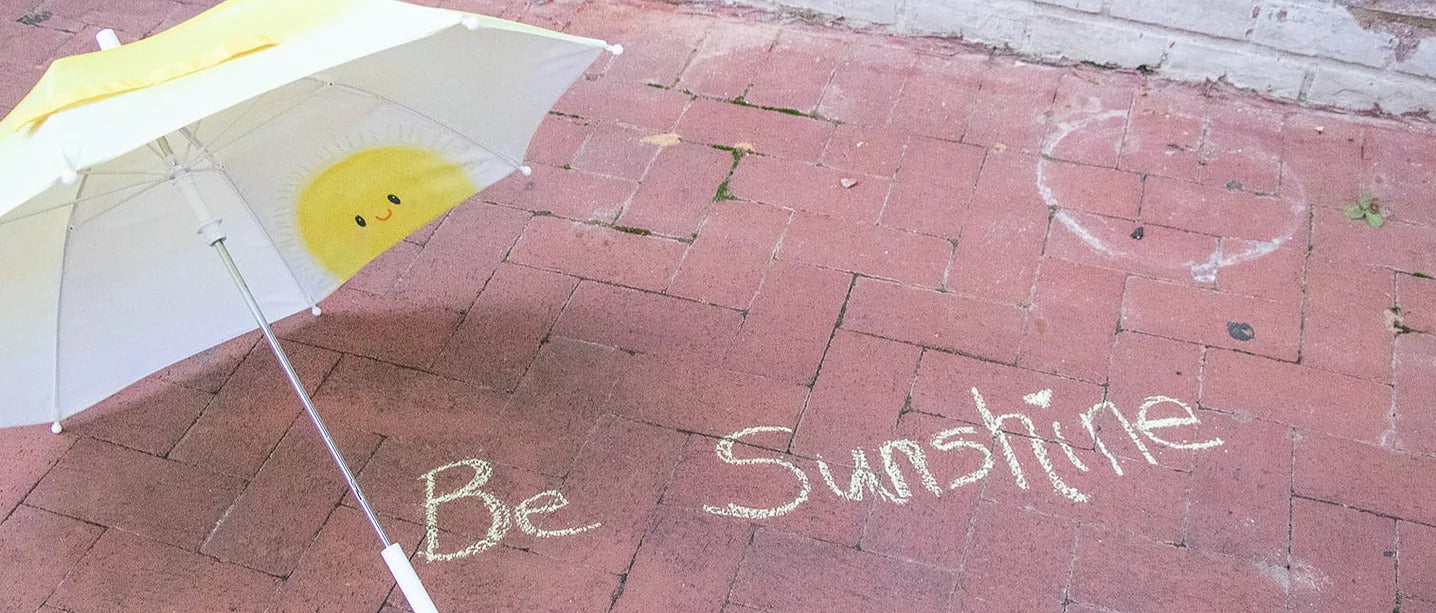 Be Sunshine